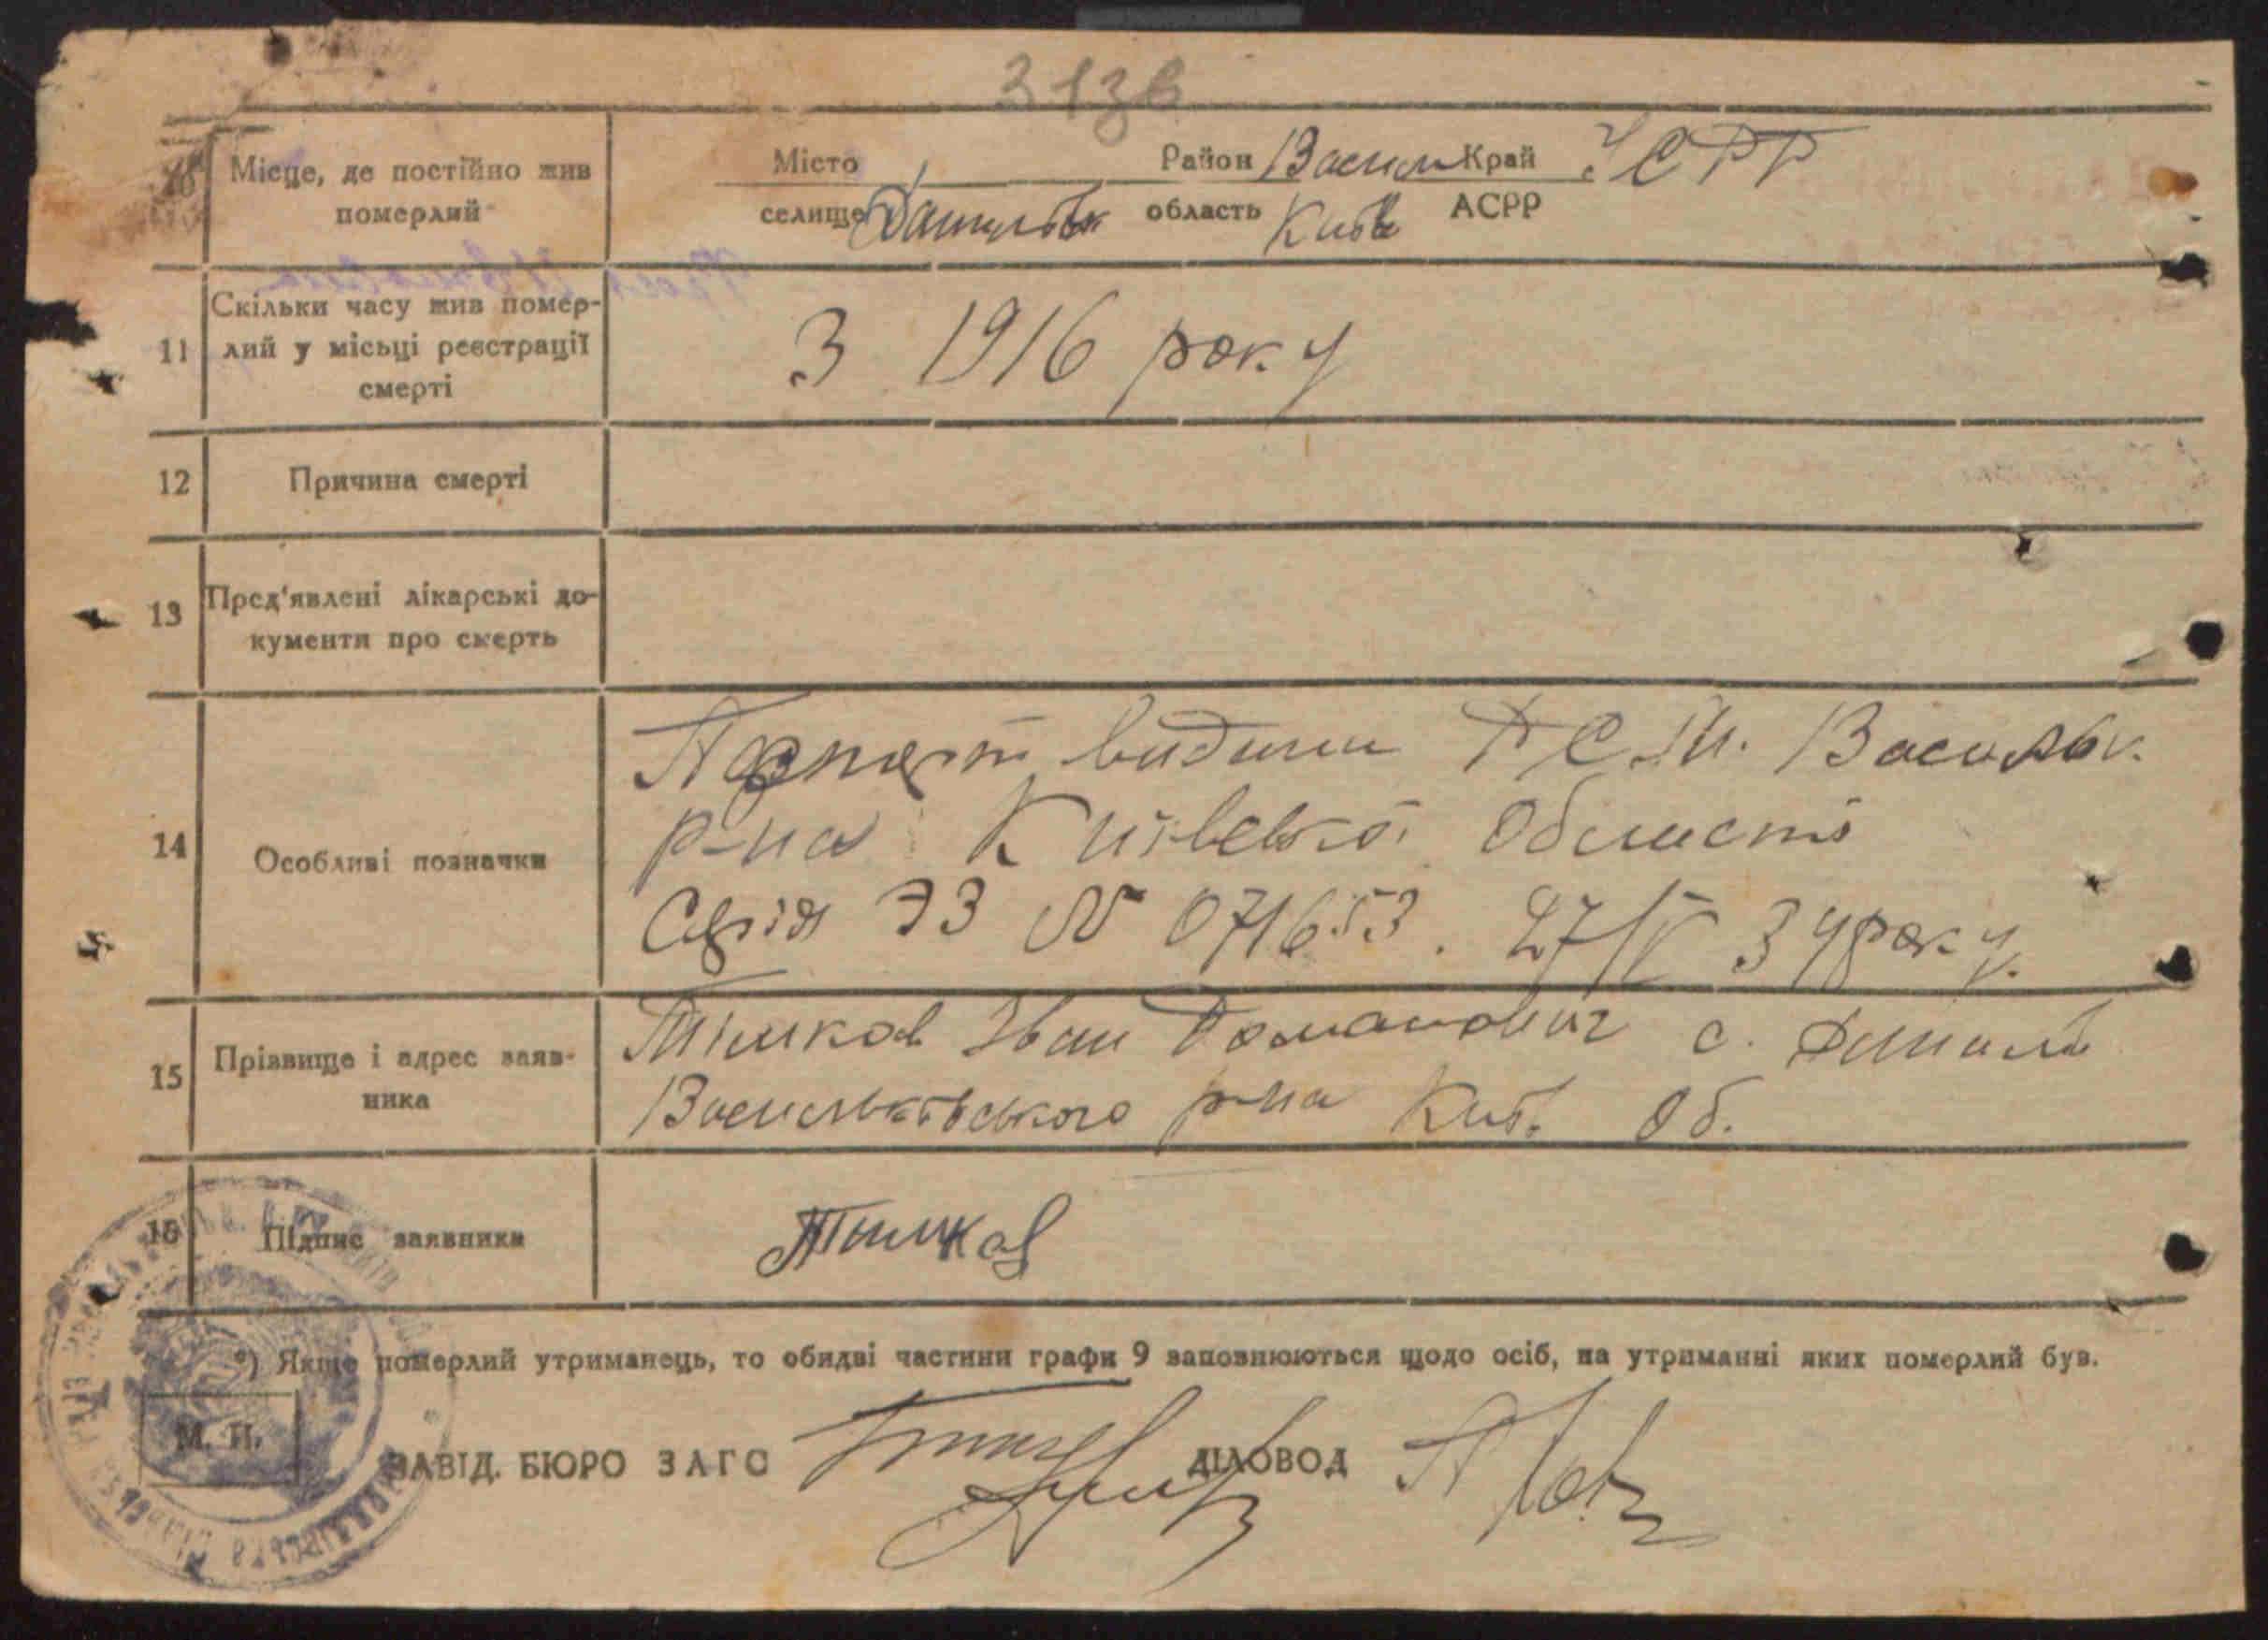 313в
10 Місце, де постійно жив Місто Район Васильк Край УСРР
померлий селище Данилівк область Київ АСРР
11 Скільки часу жив помер-
лий у місьці реєстрації З 1916 року
смерті
12 Причина смерті
13 Пред'явлені лікарські до-
кументи про смерть
Паспорт видини Р.С.М. Васильк.
р-на Київської Області
14 Особливі позначки
Серія ЭЗ № 071653. 27/V 34 року.
15 Прізвище і адрес заяв-
ника
Тімков Іван Романович с. Данилів
Васильківського р-на Київ. Об.
16 Підпис заявника Тимков
*) Якще померлий утриманець, то обидві частини графи 9 заповнюються щодо осіб, на утриманні яких померлий був.
М. П.
ЗАВІД. БЮРО ЗАГС ДІЛОВОД